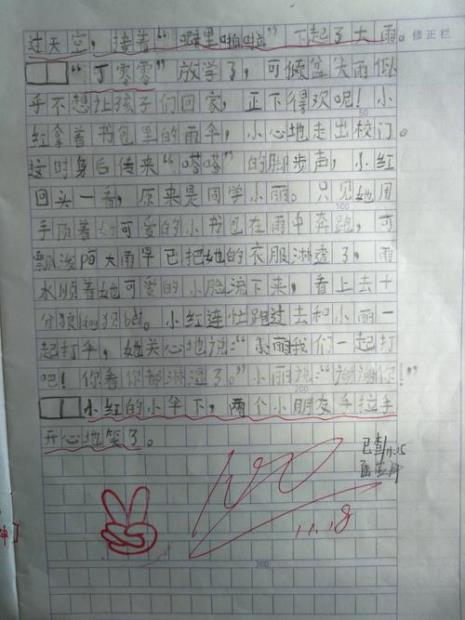 过天空，接着“噼里啪啦”下起了大雨。 修正栏
“丁零零”放学了，可倾盆大雨似
乎不想让孩子们回家，正下得欢呢！小
红拿着书包里的雨伞，小心地走出校门。
这时身后传来“嗒嗒”的脚步声，小红
回头一看，原来是同学小丽。只见她用
手顶着她可爱的小书包在雨中奔跑，可
瓢泼大雨早已把她的衣服淋透了，雨
水顺着她可爱的小脸流下来，看上去十
分狼狈。小红连忙跑过去和小丽一
起打伞，她关心地说：“小丽我们一起打
吧！你看你都淋湿了。”小丽说：“谢谢你！”
小红的小伞下，两个小朋友手拉手
开心地笑了。
已查11.15
11.18
100
200
300